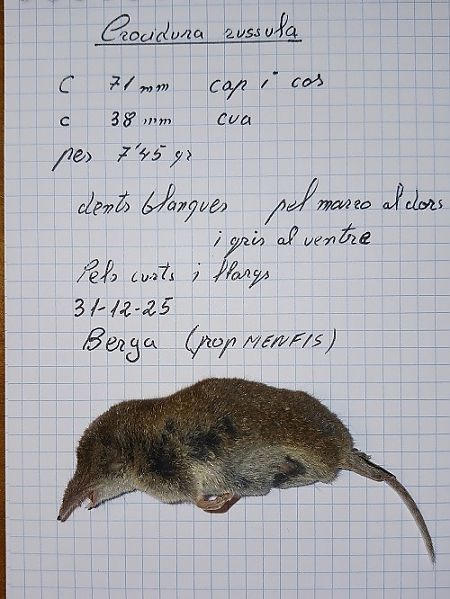 Crocidura russula
C 71 mm cap i cos
c 38 mm cua
pes 7'45 gr
dents blanques pel marro al dors
i gris al ventre
Pels curts i llargs
31-12-25
Berga (prop MENFIS)